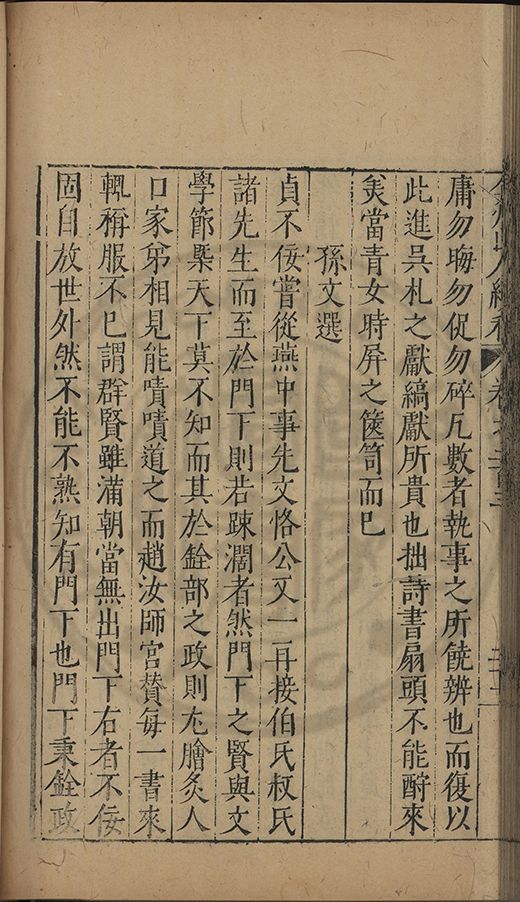 庸勿晦勿促勿碎凡數者執事之所饒辨也而復以
此進吳札之獻縞獻所貴也拙詩書扇頭不能酧來
美當青女時屏之篋笥而已
孫文選
貞不佞嘗從燕中事先文恪公又一再接伯氏叔氏
諸先生而至於門下則若踈濶者然門下之賢與文
學節槩天下莫不知而其於銓部之政則尢膾炙人
口家弟相見能嘖嘖道之而趙汝師宮賛每一書來
輒稱服不已謂群賢雖滿朝當無出門下右者不佞
固自放世外然不能不熟知有門下也門下秉銓政